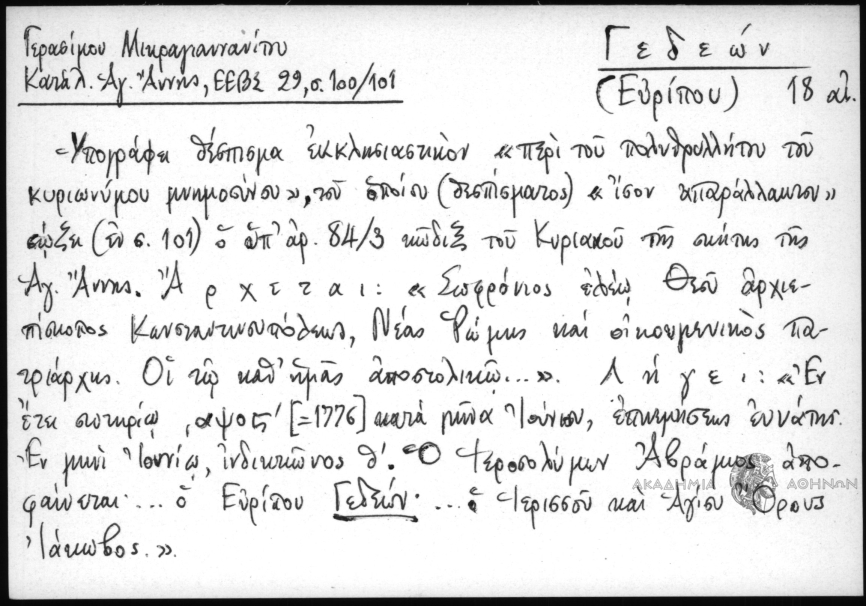 Γερασίμου Μικραγιαννανίτου
Κατάλ. Ἁγ. Ἄννης, ΕΕΒΣ 29, σ. 100/101
Γεδεών
(Εὐρίπου) 18 αἰ.
Ὑπογράφει θέσπισμα ἐκκλησιαστικὸν «περὶ τοῦ πολυθρυλλήτου τοῦ
κυριωνύμου μνημοσύνου», τοῦ ὁποίου (θεσπίσματος) «ἴσον ἀπαράλλακτον»
σῴζει (ἐν σ. 101) ὁ ὑπ' ἀρ. 84/3 κῶδιξ τοῦ Κυριακοῦ τῆς σκήτης τῆς
Ἁγ. Ἄννης. Ἄρχεται: «Σωφρόνιος ἐλέῳ Θεοῦ ἀρχιε-
πίσκοπος Κωνσταντινουπόλεως, Νέας Ῥώμης καὶ οἰκουμενικὸς πα-
τριάρχης. Οἱ τῶν καθ' ἡμᾶς ἀποστολικῶν...». Λήγει: «Ἐν
ἔτει σωτηρίῳ ͵αψος' [=1776] κατὰ μῆνα Ἰούνιον, ἐπινεμήσεως ἐννάτης.
Ἐν μηνὶ Ἰουνίῳ, ἰνδικτιῶνος θ'. Ὁ Ἱεροσολύμων Ἀβράμιος ἀπο-
φαίνεται ... ὁ Εὐρίπου Γεδεών· ... ὁ Ἱερισσοῦ καὶ Ἁγίου Ὄρους
Ἰάκωβος.».
ΑΚΑΔΗΜΙΑ ΑΘΗΝΩΝ